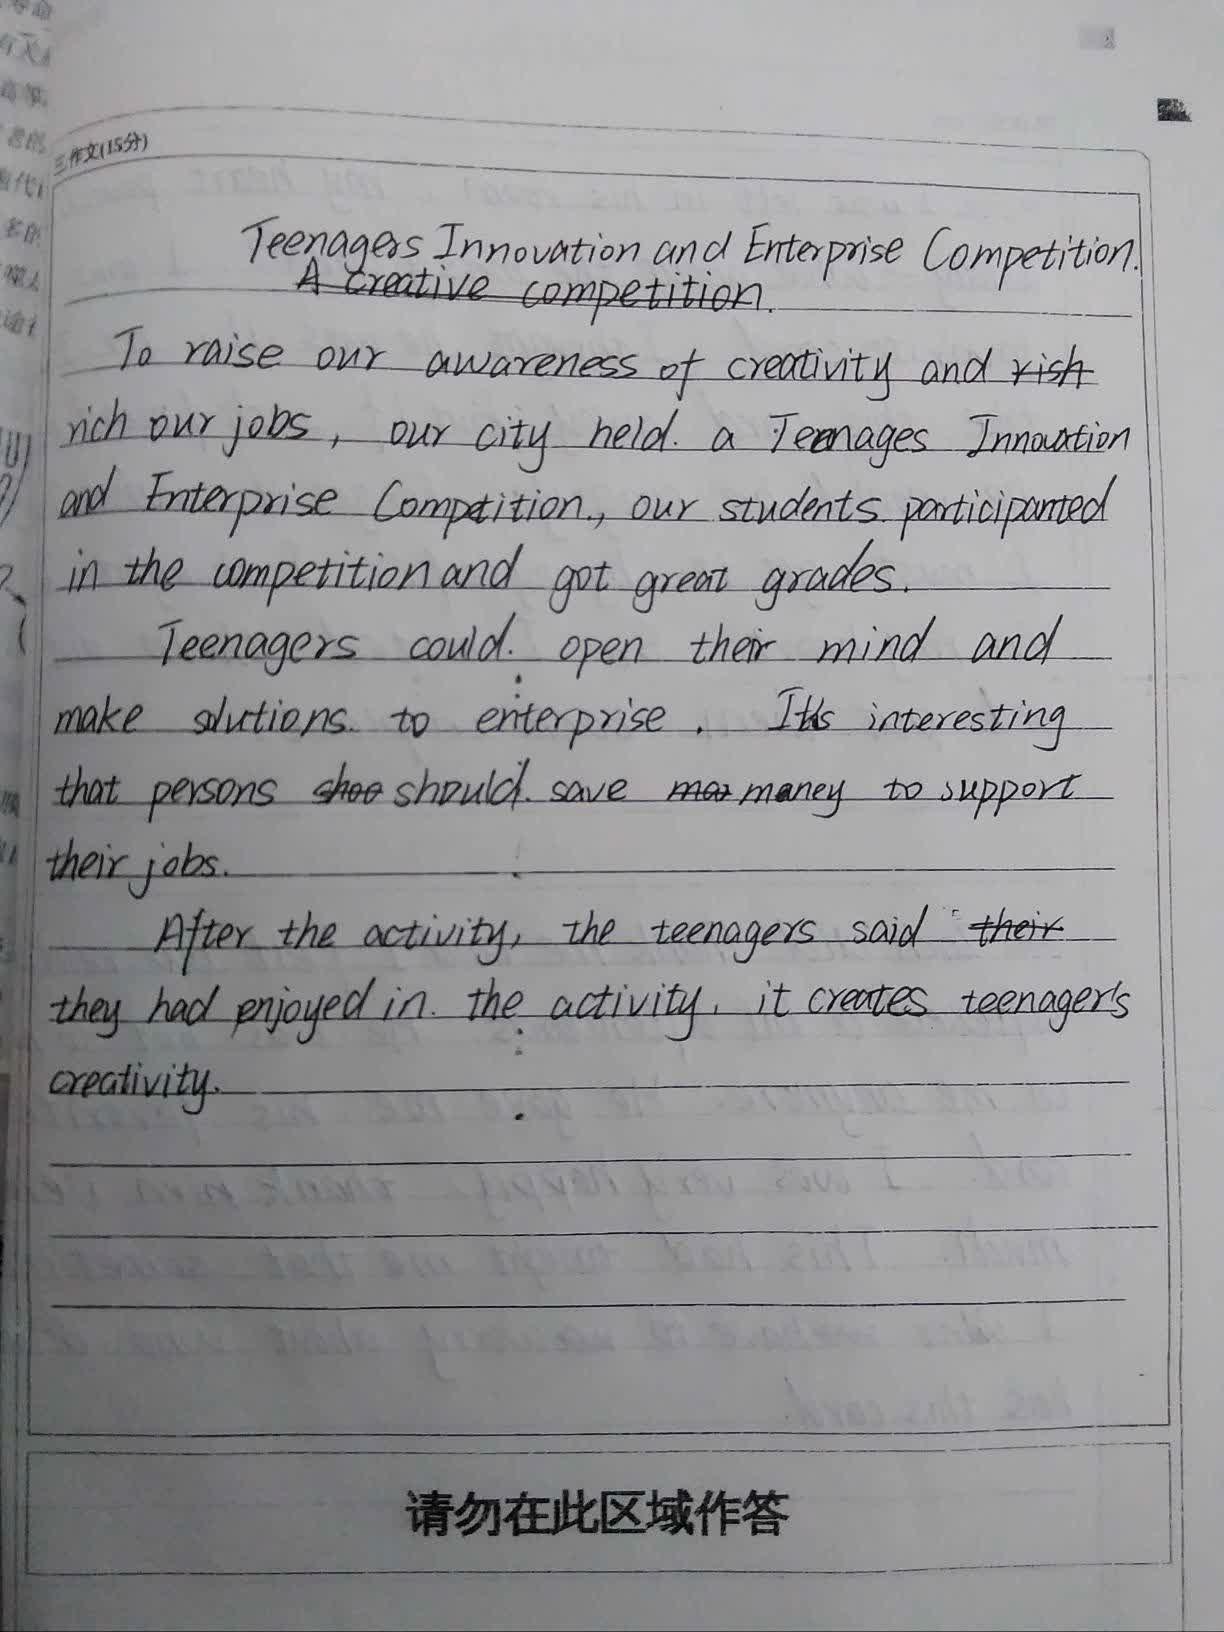 三 作文(15分)
Teenagers Innovation and Enterprise Competition.
A creative competition.
To raise our awareness of creativity and rish
rich our jobs, our city held. a Teenages Innovation
and Enterprise Competition., our students participanted
in the competition and got great grades.
Teenagers could. open their mind and
make solutions. to enterprise. It's interesting
that persons shoo should. save mor money to support
their jobs.
After the activity, the teenagers said their
they had enjoyed in. the activity. it creates teenager's
creativity.
请勿在此区域作答